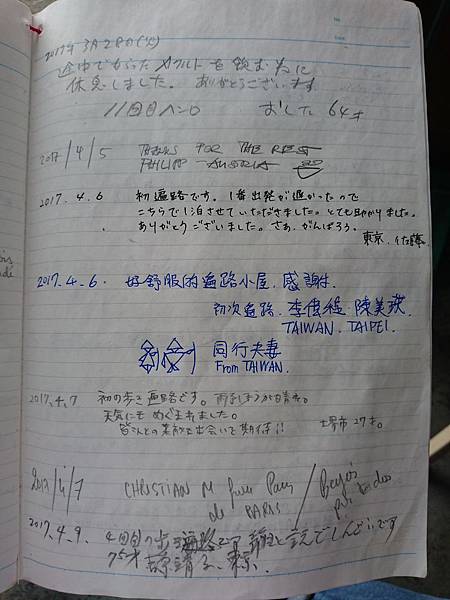 2017年3月28日(火)
途中でもらったヤクルトを飲む為に
休息しました。ありがとうございます
11回目ヘンロ 64才
2017/4/5 THANKS FOR THE REST
PHILIPP AUSTRIA
2017.4.6 初遍路です。1番出発が遅かったので
こちらで1泊させていただきました。とても助かりました。
ありがとうございました。さあ、がんばろう。
東京
2017.4.6. 好舒服的遍路小屋.感謝.
初次遍路.李俊緹 陳美
TAIWAN. TAIPEI.
同行夫妻
From TAIWAN.
2017.4.7 初の歩き遍路です。
天気にもめぐまれました。
皆さんとの素敵な出会いに期待!!
堺市 27才。
2017/4/7 CHRISTIAN M
de PARIS
2017.4.9. 4回目の歩き遍路です
75才 東京.